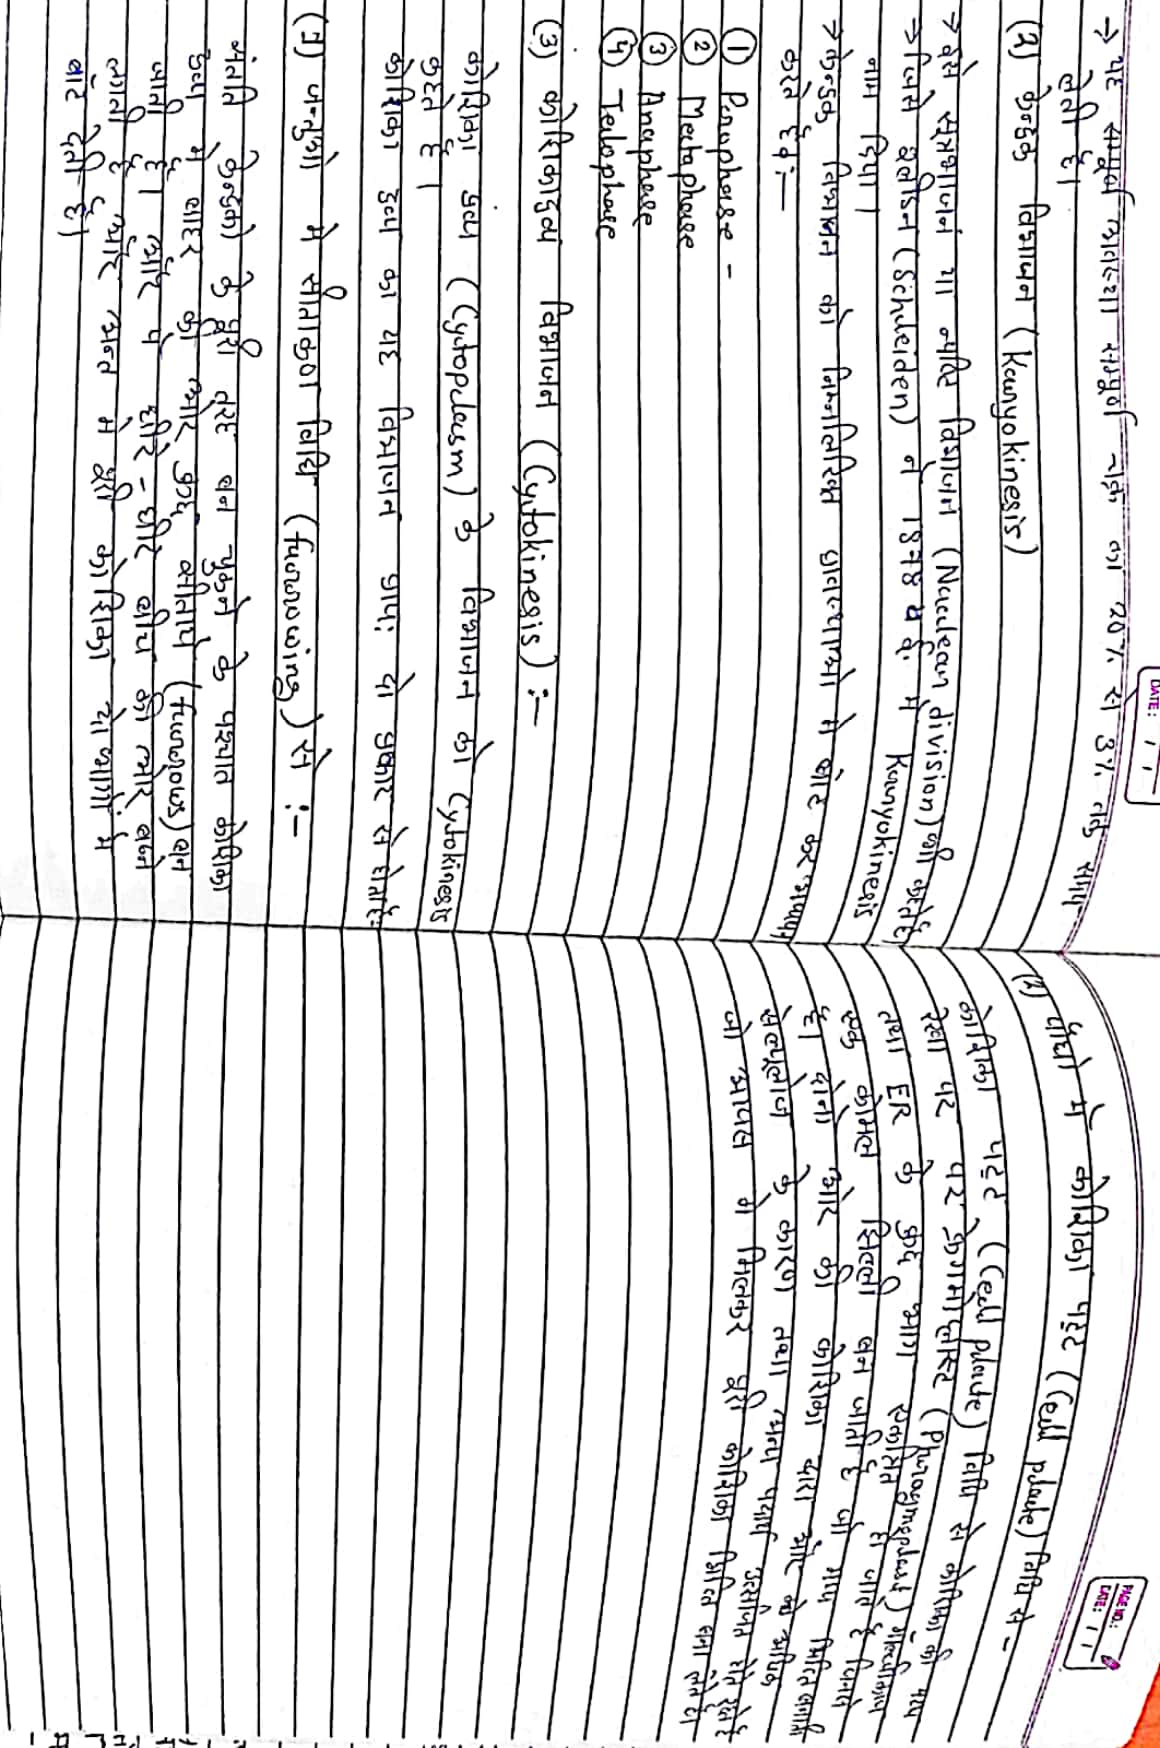 DATE: / /
→ यह सम्पूर्ण अवस्था सम्पूर्ण चक्र का 20% से 3% तक समय
लेती है।
(2) केन्द्रक विभाजन (Karyokinesis)
→ इसे सूत्रभाजन या न्यष्टि विभाजन (Nuclear division) भी कहते हैं
→ जिसे श्लीडन (Schleiden) ने 1878 में Karyokinesis
नाम दिया।
→ केन्द्रक विभाजन को निम्नलिखित अवस्थाओं में बांट कर
करते हैं :—
① Prophase -
② Metaphase
③ Anaphase
④ Telophase
(3) कोशिकाद्रव्य विभाजन (Cytokinesis) :—
कोशिका द्रव्य (Cytoplasm) के विभाजन को Cytokinesis
कहते हैं।
कोशिका द्रव्य का यह विभाजन प्रायः दो प्रकार से होता है:-
(1) जन्तुओं में सीताकरण विधि (furrowing) से :—
संतति केन्द्रकों के पूरी तरह बन चुकने के पश्चात कोशिका
द्रव्य में बाहर की ओर कुछ सीतायें (furrows) बन
जाती हैं। और ये धीरे - धीरे बीच की ओर बनने
लगती हैं और अन्त में पूरी कोशिका दो भागों में
बांट देती हैं।
PAGE NO.:
DATE: / /
(2) पौधों में कोशिका पट्ट (Cell plate) विधि से -
कोशिका पट्ट (Cell plate) विधि से कोशिका की मध्य
रेखा पर फ्रेगमोप्लास्ट (Phragmoplast)
तथा ER के कुछ भाग एकत्रित हो जाते हैं जिनसे
एक कोमल झिल्ली बन जाती है जो मध्य भित्ति बनाती
है। दोनों ओर की कोशिका द्वारा और भी अधिक
सेल्यूलोज के कारण तथा अन्य पदार्थ उत्सर्जित होते रहते हैं
जो आपस में मिलकर पूरी कोशिका भित्ति बना लेते हैं।